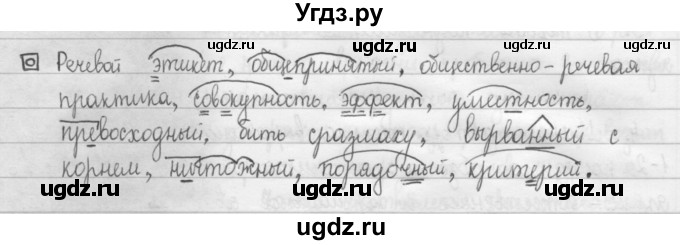 Угдз.ру
Речевой этикет, общепринятый, общественно-речевая
практика, совокупность, эффект, уместность,
превосходный, бить сразмаху, вырванный с
корнем, ничтожный, порядочный, критерий.
ugdz.ru ugdz.ru ugdz.ru
ugdz.ru ugdz.ru
ugdz.ru ugdz.ru
ugdz.ru ugdz.ru ugdz.ru
ugdz.ru